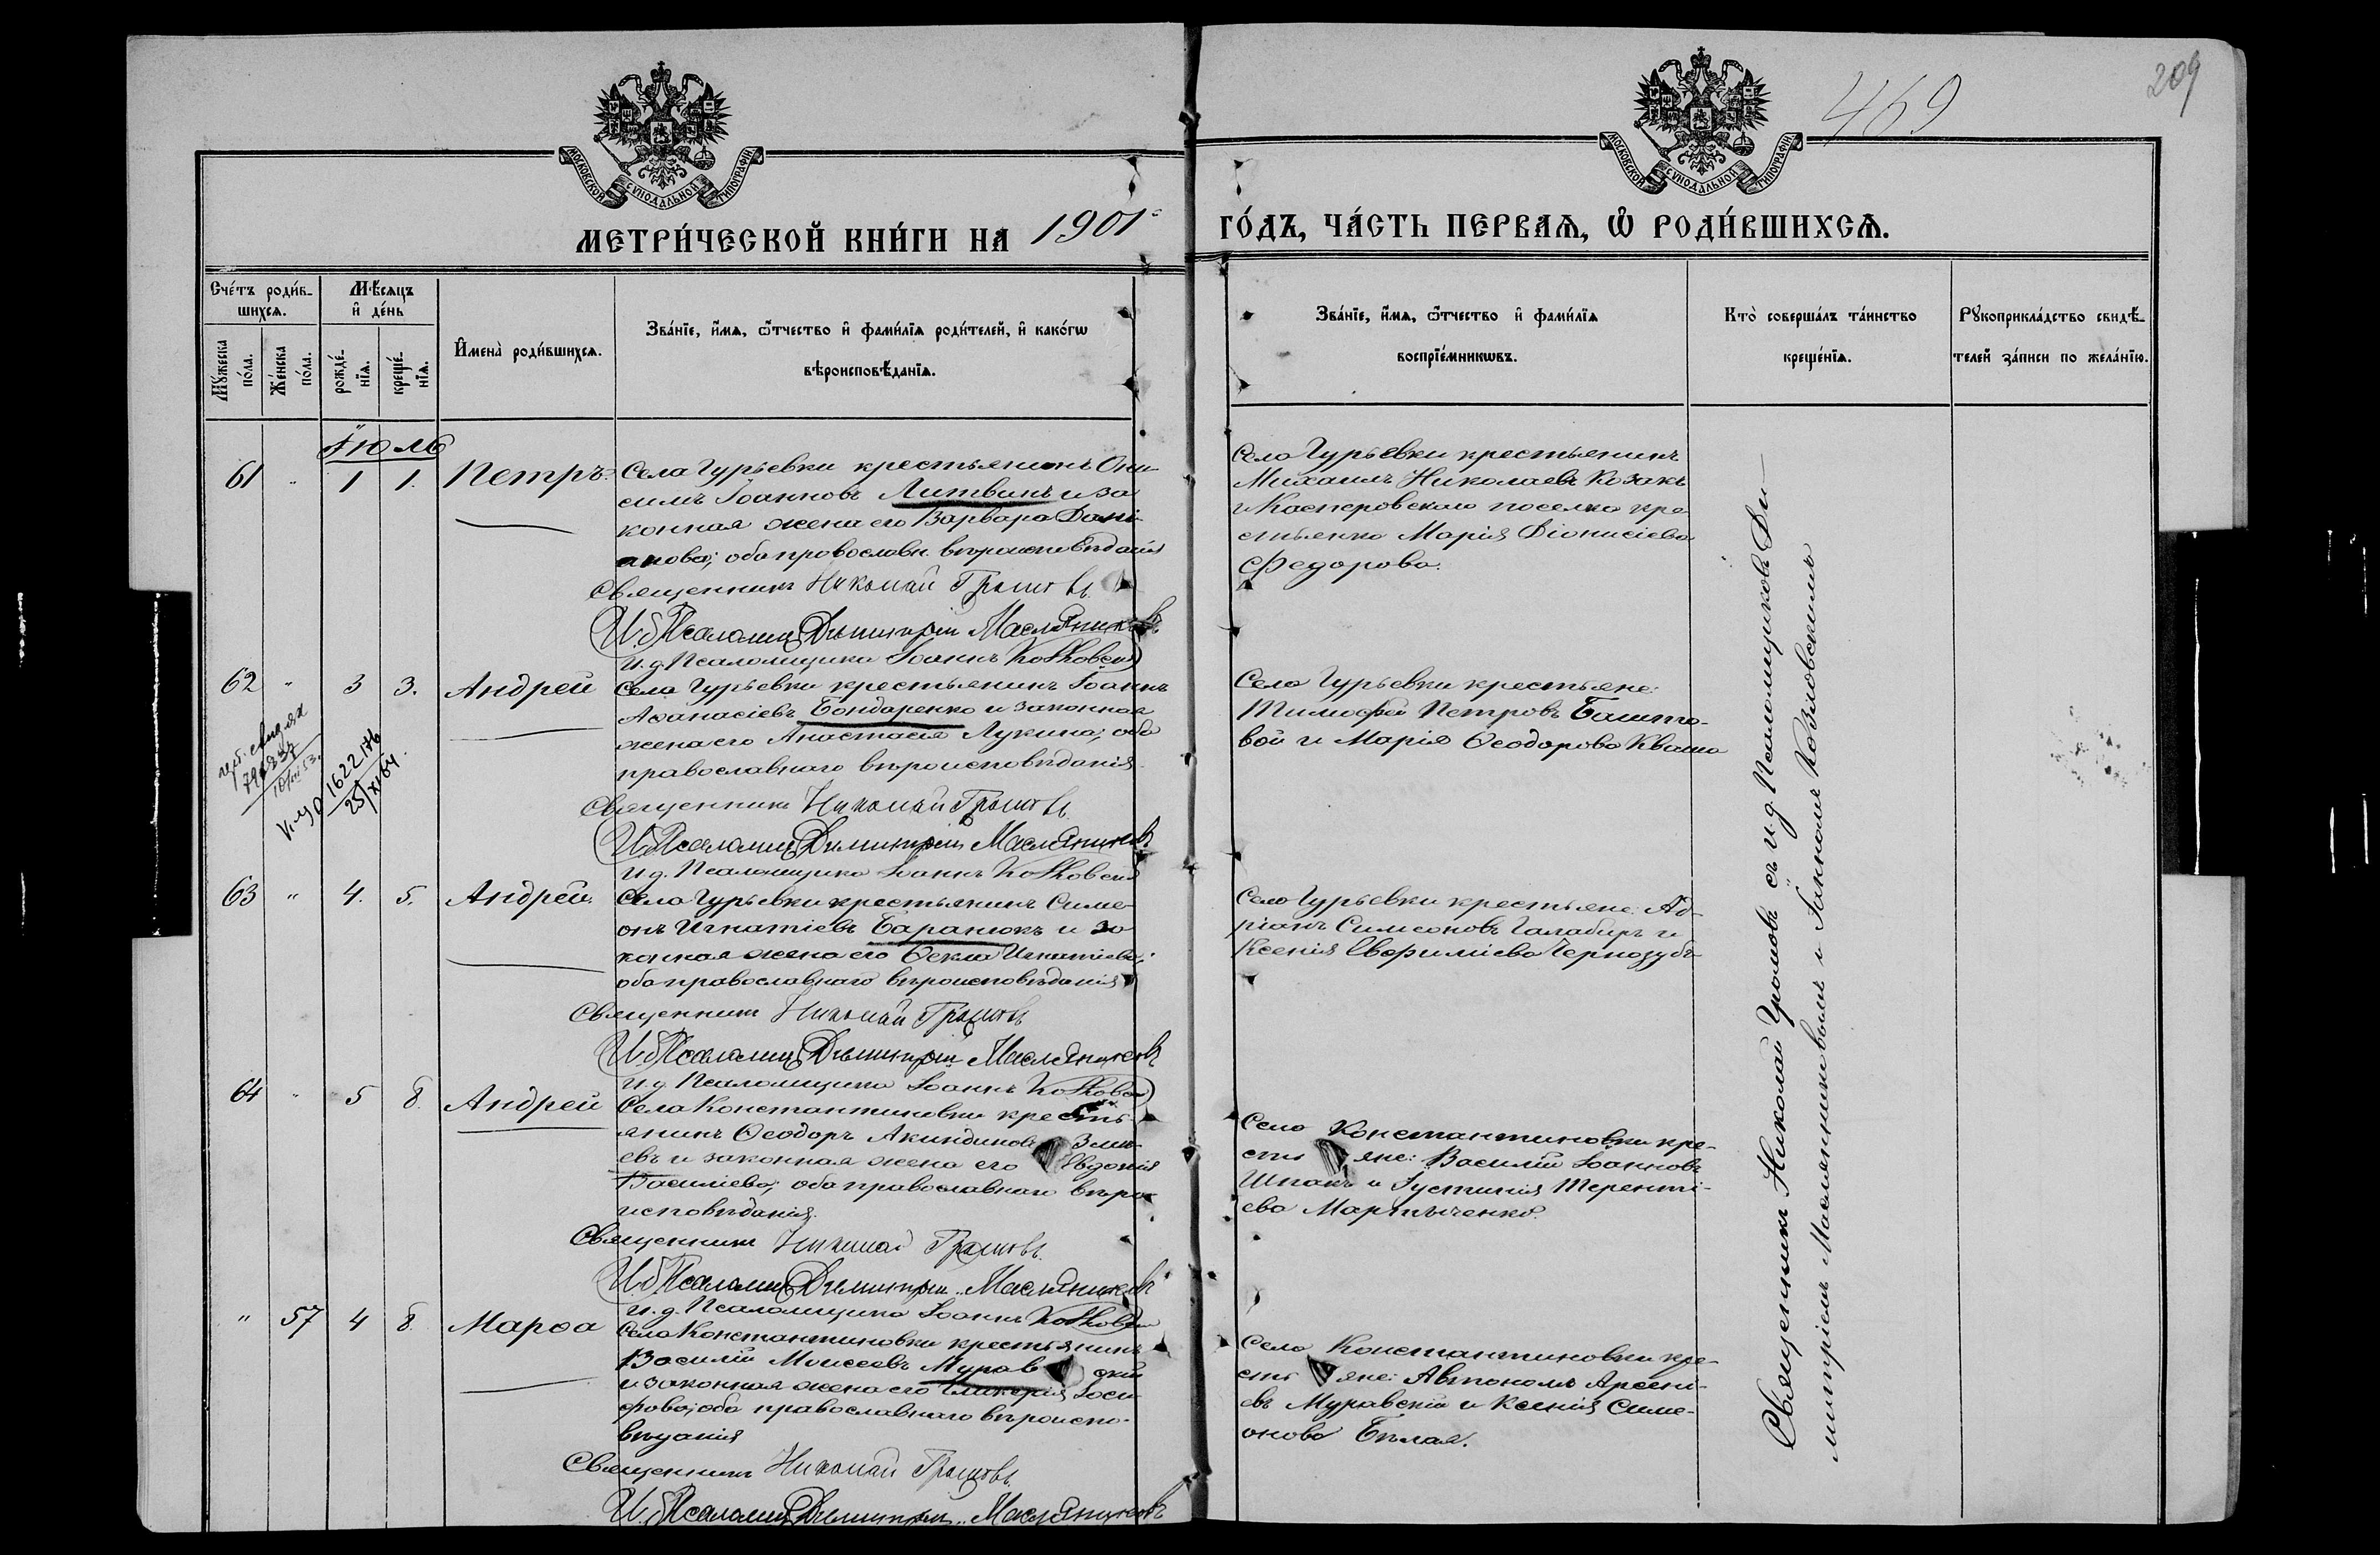 469
209
МОСКОВСКОЙ СѴНОДАЛЬНОЙ ТИПОГРАФІИ
МОСКОВСКОЙ СѴНОДАЛЬНОЙ ТИПОГРАФІИ
МЕТРИ́ЧЕСКОЙ КНИ́ГИ НА 1901 ГО́ДЪ, ЧА́СТЬ ПЕРВАѦ, Ѡ҆ РОДИ́ВШИХСѦ.
Сче́тъ роди́в-
шихсѧ.
Мꙋ́жеска по́ла.
Же́нска по́ла.
Мѣ́сѧцъ
и҆ де́нь
рожде́-
нїѧ.
креще́-
нїѧ.
И҆мена̀ роди́вшихсѧ.
Зва́нїе, и҆́мѧ, ѻ҆́тчество и҆ фами́лїѧ роди́телей, и҆ како́гѡ
вѣроисповѣ́данїѧ.
Зва́нїе, и҆́мѧ, ѻ҆́тчество и҆ фами́лїѧ
воспрїе́мникѡвъ.
Кто̀ соверша́лъ та́инство
креще́нїѧ.
Рꙋкоприкла́дство свидѣ́-
телей за́писи по жела́нїю.
Іюль
61 " 1 1. Петръ. Села Гурьевки крестьянинъ Они-
симъ Іоанновъ Литвинъ и за
конная жена его Варвара Дамі-
анова; оба православн. вѣроисповѣданія
Священникъ Николай Громовъ.
И. д. Псаломщ. Димитрій Маслянниковъ
и. д. Псаломщика Іоаннъ Козловскій
Села Гурьевки крестьянинъ
Михаилъ Николаевъ Козакъ
и Касперовскаго поселка кре-
стьянка Марія Діонисіева
Федорова.
62 " 3 3. Андрей Села Гурьевки крестьянинъ Іоаннъ
Аѳанасіевъ Бондаренко и законная
жена его Анастасія Лукина; оба
православнаго вѣроисповѣданія.
Священникъ Николай Громовъ.
И. д. Псаломщ. Димитрій Маслянниковъ
и. д. Псаломщика Іоаннъ Козловскій
Села Гурьевки крестьяне:
Тимоѳей Петровъ Башто-
вой и Марія Ѳеодорова Кваша
1622176
25/XI 64.
63 " 4. 5. Андрей. Села Гурьевки крестьянинъ Симе-
онъ Игнатіевъ Баранюкъ и за
конная жена его Ѳекла Игнатіева;
оба православнаго вѣроисповѣданія
Священникъ Николай Громовъ
И. д. Псаломщ. Димитрій Маслянниковъ
и. д. Псаломщика Іоаннъ Козловскій
Села Гурьевки крестьяне: Ад-
ріанъ Симеоновъ Галабиръ и
Ксенія Евфиміева Чернозубъ
64 " 5 8. Андрей Села Константиновки кресть-
янинъ Ѳеодоръ Акиндиновъ Змі-
евъ и законная жена его Евдокія
Василіева; оба православнаго вѣро-
исповѣданія.
Священникъ Николай Громовъ.
И. д. Псаломщ. Димитрій Маслянниковъ
и. д. Псаломщика Іоаннъ Козловскій
Села Константиновки кре-
стьяне: Василій Іоанновъ
Шпакъ и Іустинія Теренті-
ева Мартыненко.
" 57 4 8. Марѳа Села Константиновки крестьянинъ
Василій Моисеевъ Муравскій
и законная жена его Гликерія Іоси-
фова; оба православнаго вѣроиспо-
вѣданія
Священникъ Николай Громовъ.
И. д. Псаломщ. Димитрій Маслянниковъ
Села Константиновки кре-
стьяне: Автономъ Арсені-
евъ Муравскій и Ксенія Симе-
онова Бѣлая.
Священникъ Николай Громовъ съ и. д. Псаломщиковъ Ди-
митріемъ Маслянниковымъ и Іоанномъ Козловскимъ